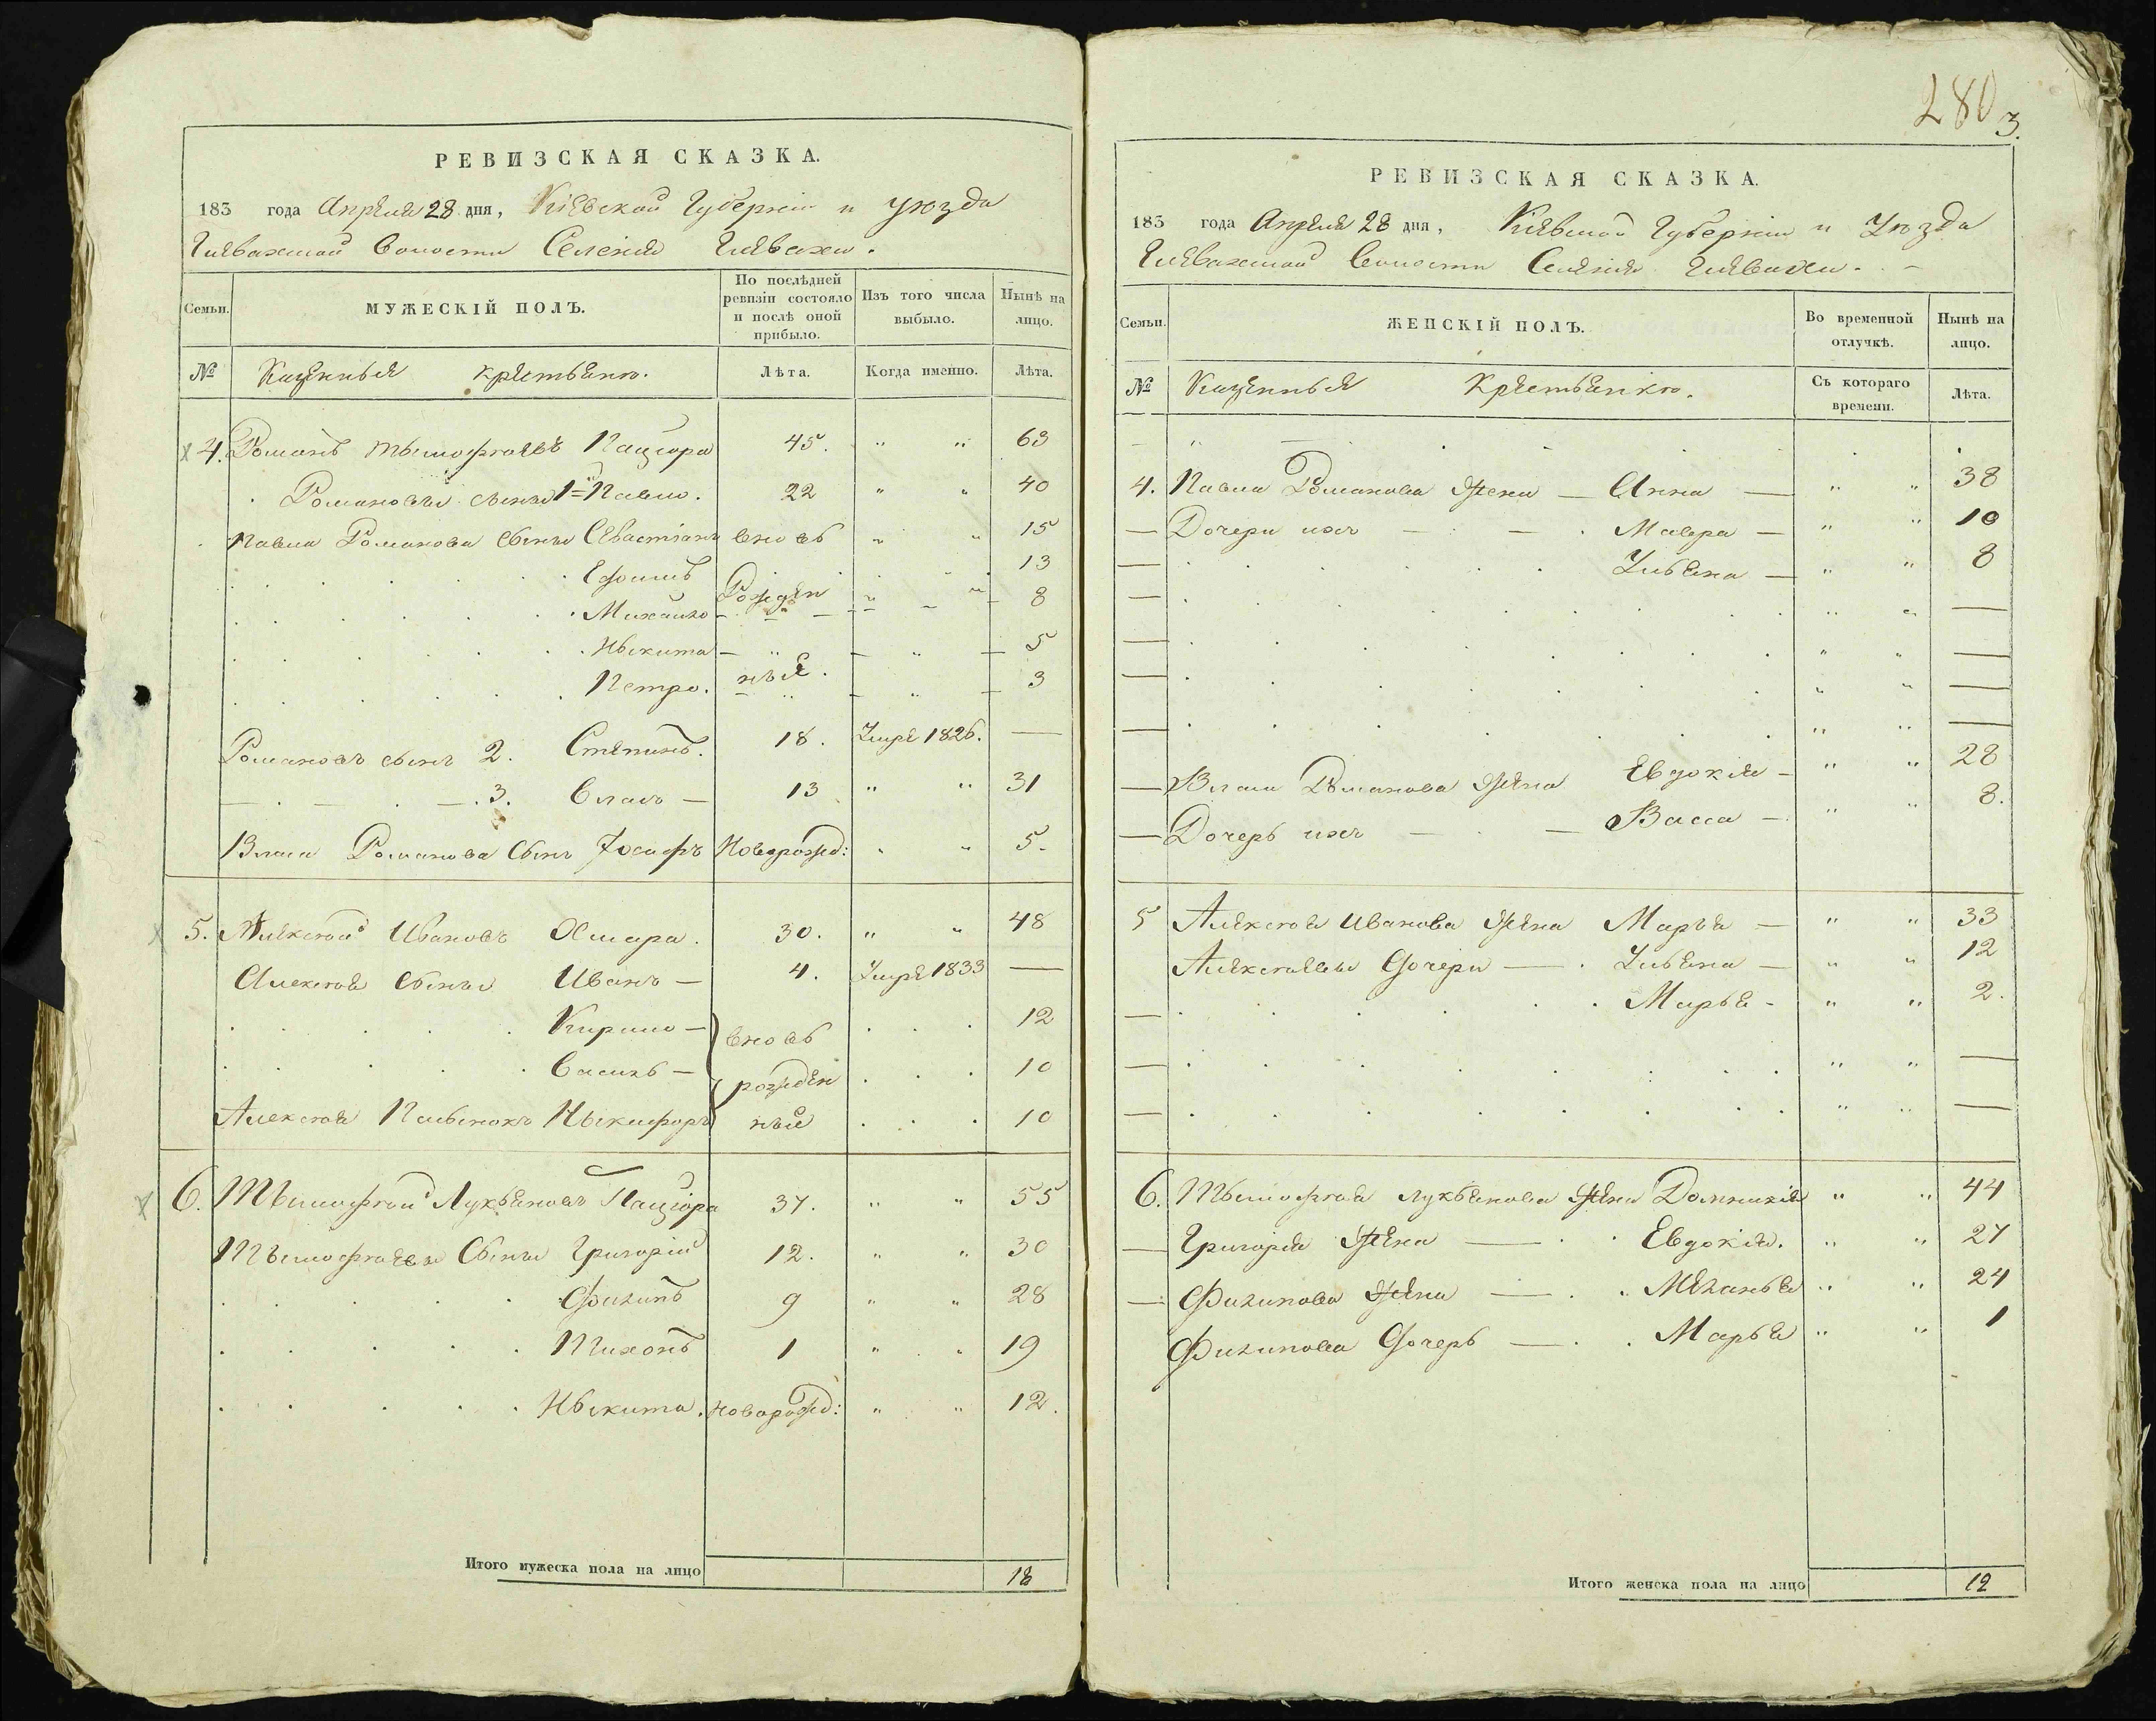 РЕВИЗСКАЯ СКАЗКА.
183 года Апреля 28 дня, Кіевской Губерніи и уезда
волости Селенія
Семьи. МУЖЕСКІЙ ПОЛЪ. По послѣдней ревизіи состояло и послѣ оной прибыло. Изъ того числа выбыло. Нынѣ на лицо.
№ Лѣта. Когда именно. Лѣта.
4. Романъ Тымофѣевъ Пацюра 45. " " 63
Романовы сыны 1= Павло. 22 " " 40
Павла Романова сыны Севастіянъ вновь " " 15
Ефимъ 13
Михайло Рожден " " 8
Ныкита " " 5
Петро. ные. " " 3
Романовъ сынъ 2. Степанъ. 18. Умре 1826. —
— . — . — . 3. Власъ — 13 " " 31
Власа Романова Сынъ Іосифъ Новорожд: " " 5.
5. Алексѣй Ивановъ Хмара. 30. " " 48
Алексѣя Сыны Иванъ — 4. Умре 1833 —
Кирило — вновь 12
Василь — рожден 10
Алексѣя Ныкифоръ ные 10
6. Тымофѣй Лукьяновъ Пацюра 37. " " 55
Тымофѣевы Сыны Григорій 12. " " 30
Филипъ 9 " " 28
Тихонъ 1 " " 19
Ныкита. Новорожд: " " 12.
Итого мужеска пола на лицо 18
280
3.
РЕВИЗСКАЯ СКАЗКА.
183 года Апреля 28 дня, Кіевской Губерніи и Уезда
волости Селенія
Семьи. ЖЕНСКІЙ ПОЛЪ. Во временной отлучкѣ. Нынѣ на лицо.
№ Съ котораго времени. Лѣта.
4. Павла Романова Жена — Анна — " " 38
— Дочери ихъ — — Мавра — " " 10
— Ульяна — " " 8
— Власа Романова Жена Евдокія — " " 28
— Дочерь ихъ — — Васса — " " 8.
5 Алексѣя Иванова Жена Марья — " " 33
Алексѣевы Дочери — Ульяна — " " 12
— Марья - " " 2.
6. Тымофѣя Лукьянова Жена Домникія " " 44
— Григорія Жена — Евдокія. " " 27
— Филипова Жена — Меланья " " 24
Филипова Дочерь — Марья " " 1
Итого женска пола на лицо 12